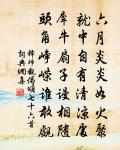 六月炎炎如火聚
就中自有清涼處
犀牛扇子謾相隨
頭角崢嶸誰敢覷
釋師觀偈頌七十六首
詞典網